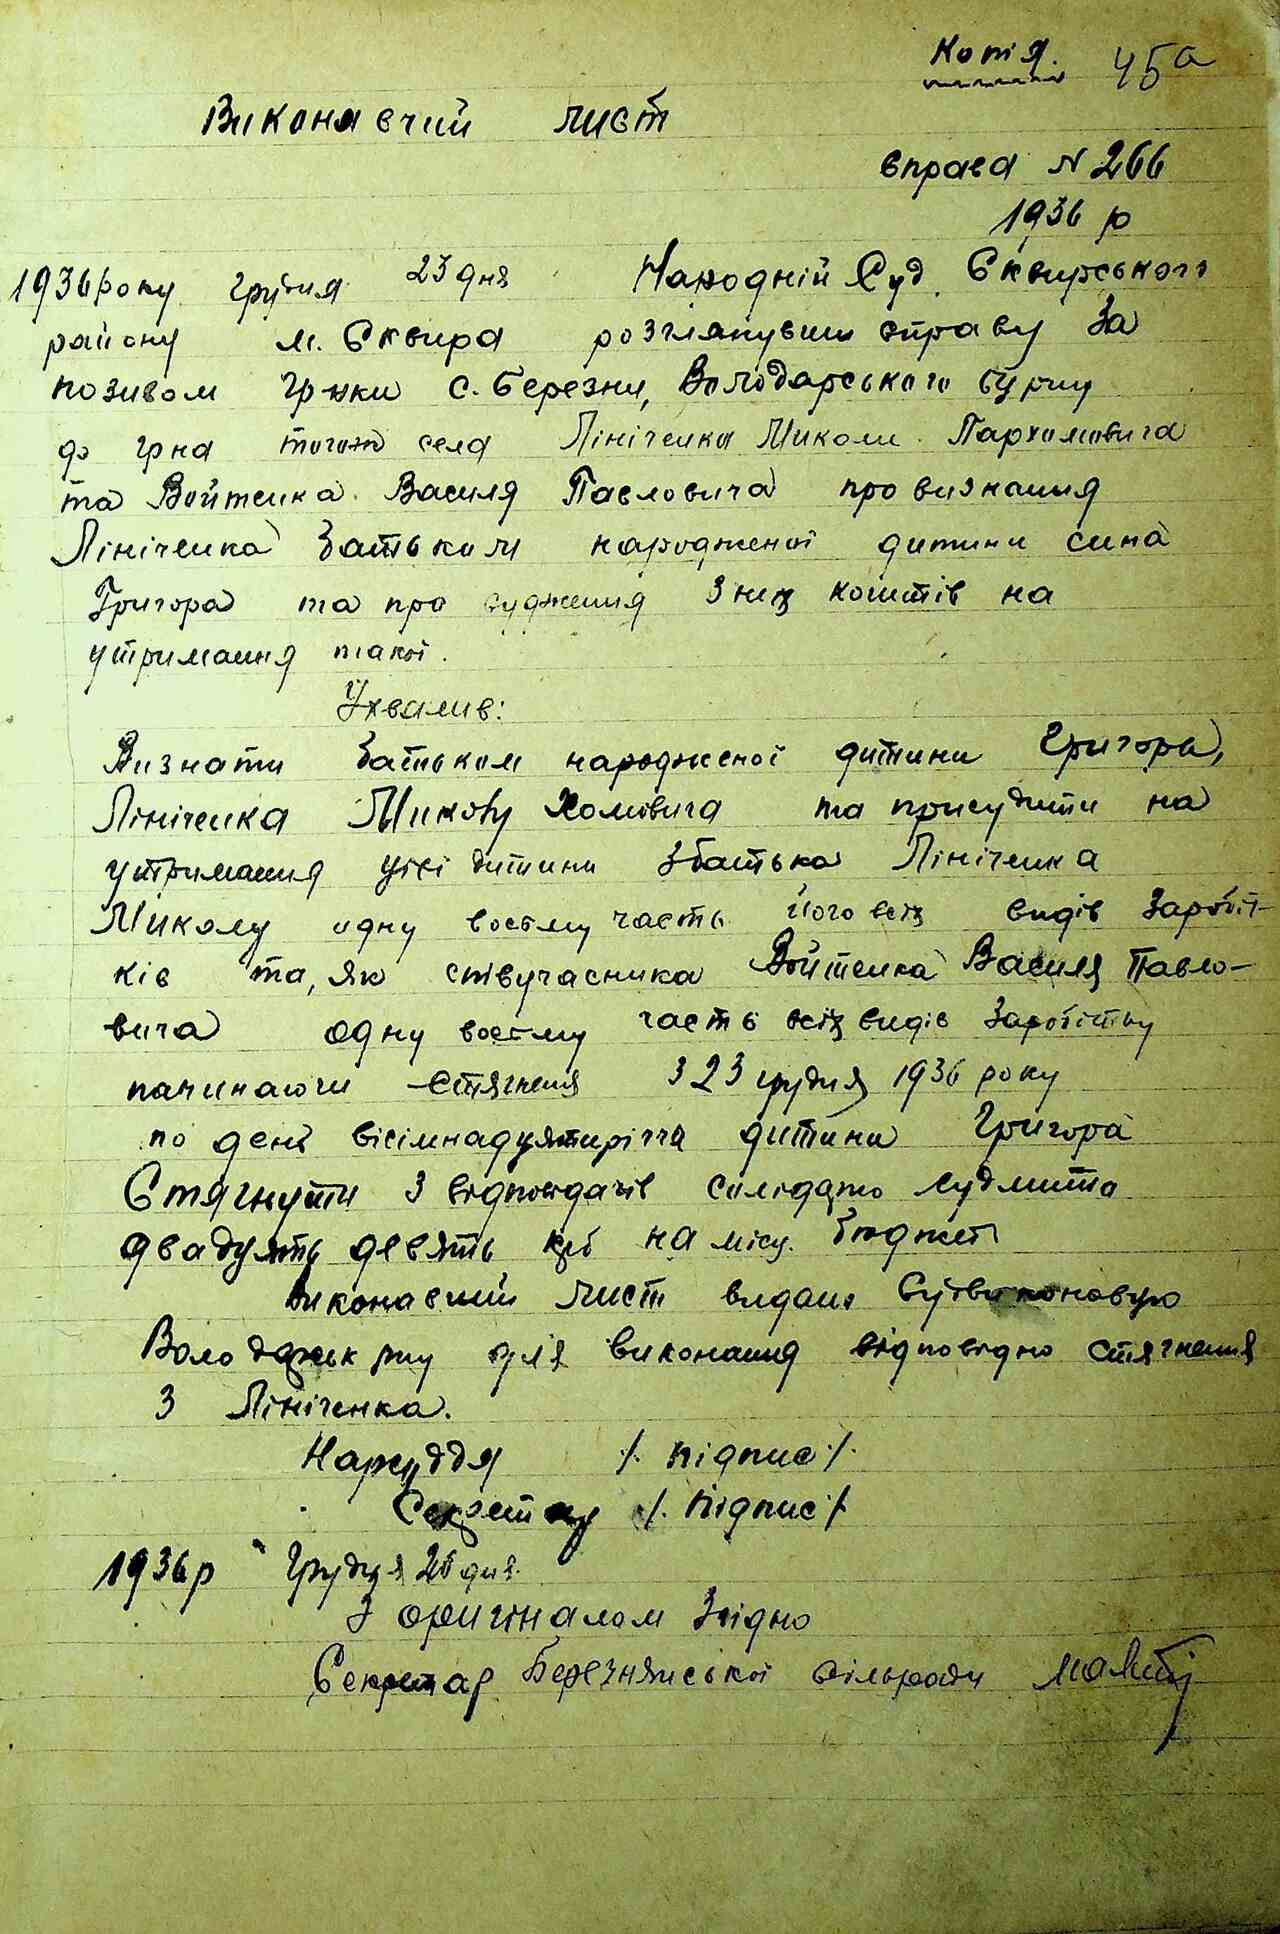 Копія. 45а
Виконавчий лист
справа N 266
1936 р
1936 року грудня 23 дня Народній Суд Сквирського
району м. Сквира розглянувши справу за
позивом гр-нки с. Березни, Володарського
до гр на того ж села Лініченка Миколи Пархомовича
та Войтенка Василя Павловича про визнання
Лініченка батьком народженої дитини сина
Григора та про судження з них коштів на
утримання такої.
Ухвалив:
Визнати батьком народженої дитини Григора,
Лініченка Миколу Хомовича та присудити на
утримання цієї дитини з батька Лініченка
Миколу одну восьму часть його всіх видів заробіт-
ків та, як співучасника Войтенка Василя Павло-
вича одну восьму часть всіх видів заробітку
починаючи стягнення з 23 грудня 1936 року
по день вісімнадцятиріччя дитини Григора
Стягнути з відповідачів солідарно судмита
двадцять девять крб на місц. бюджет
Виконавчий лист видано Судвиконавцю
Володарськ р-ну для виконання відповідно стягнення
з Лініченка.
Нарсуддя /. підпис /.
Секретар /. підпис /
1936 р Грудня 26 дня.
З оригіналом згідно
Секретар Березнянської сільради